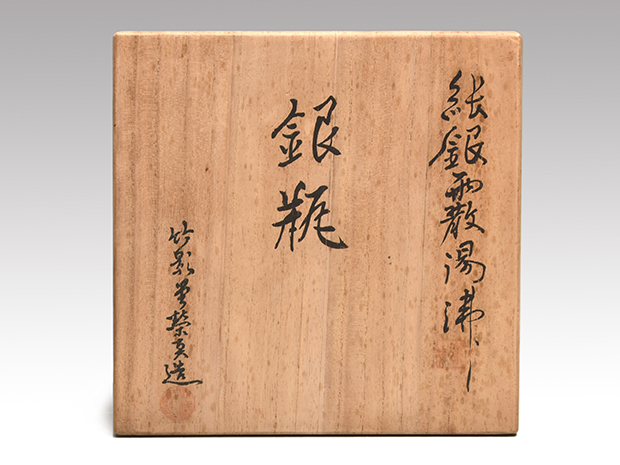 純銀霰湯沸シ
銀瓶
竹影堂榮真造